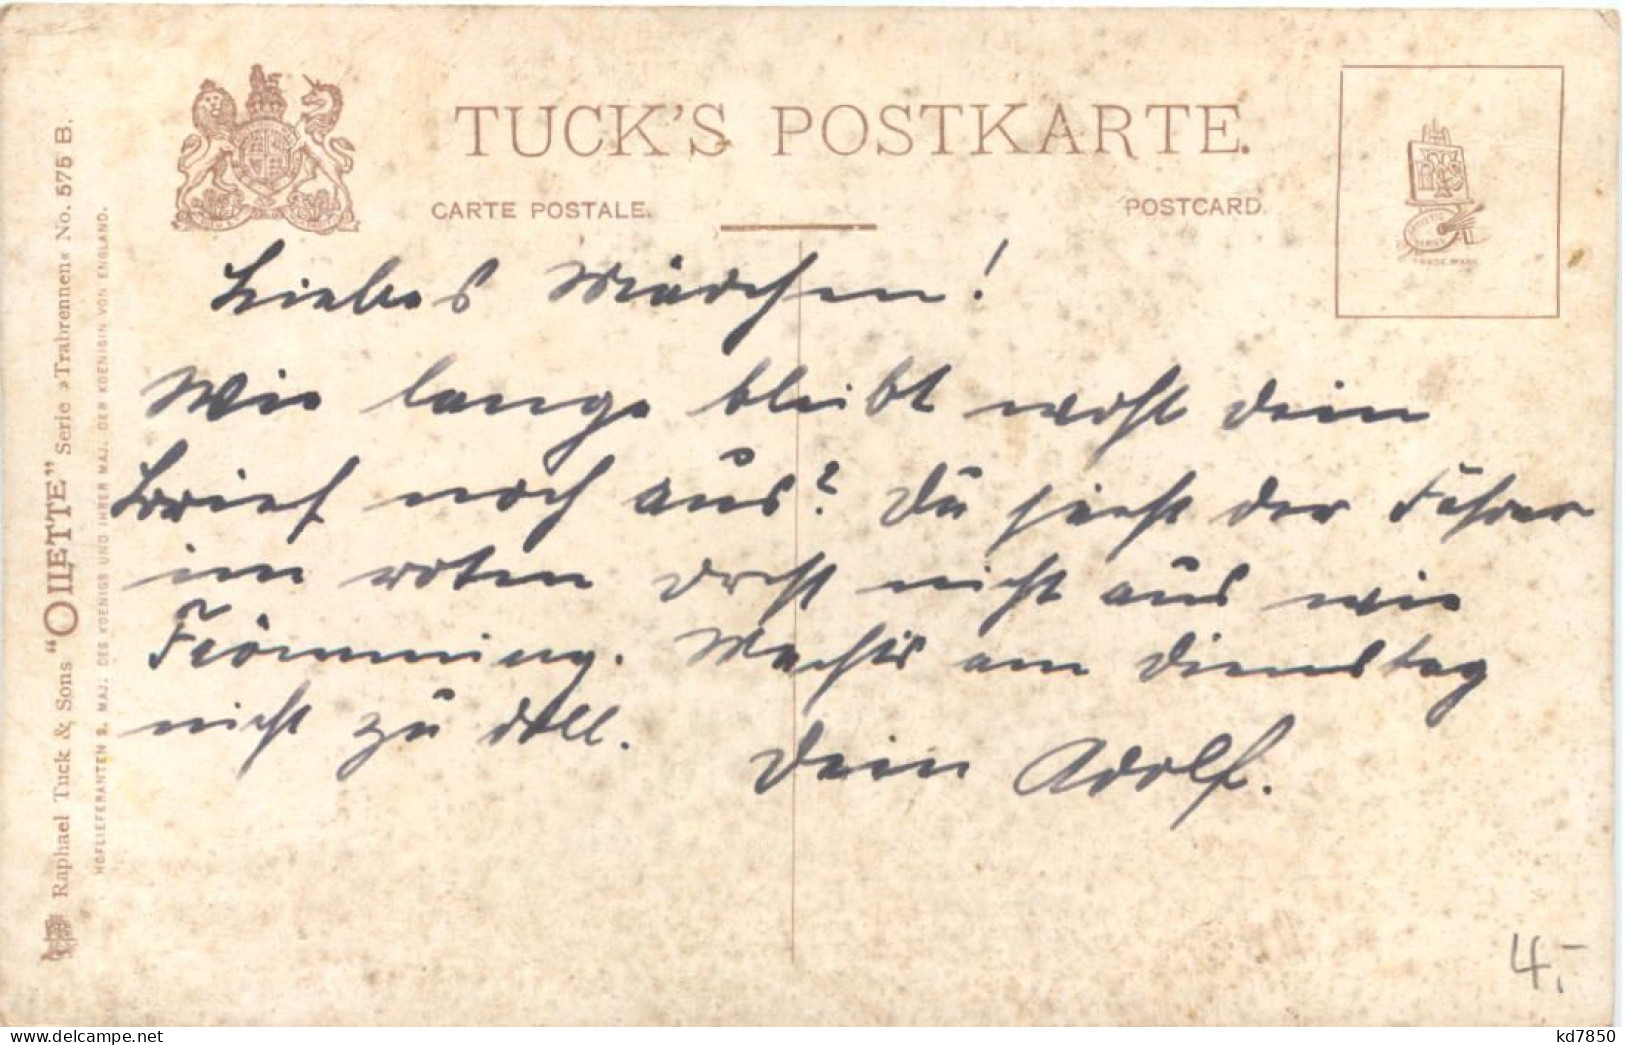 TUCK'S POSTKARTE.
CARTE POSTALE.
POSTCARD.
TRADE MARK
Raphael Tuck & Sons "OILETTE" Serie »Trabrennen« No. 575 B.
HOFLIEFERANTEN S. MAJ. DES KOENIGS UND IHRER MAJ. DER KOENIGIN VON ENGLAND.
Liebes Mädchen!
Wie lange bleibt wohl dein
Brief noch aus? Du sieht der Fahrer
im roten nicht aus wie
Flömming. Machts am Dienstag
nicht zu doll.
Dein Adolf.
4,-
kd7850